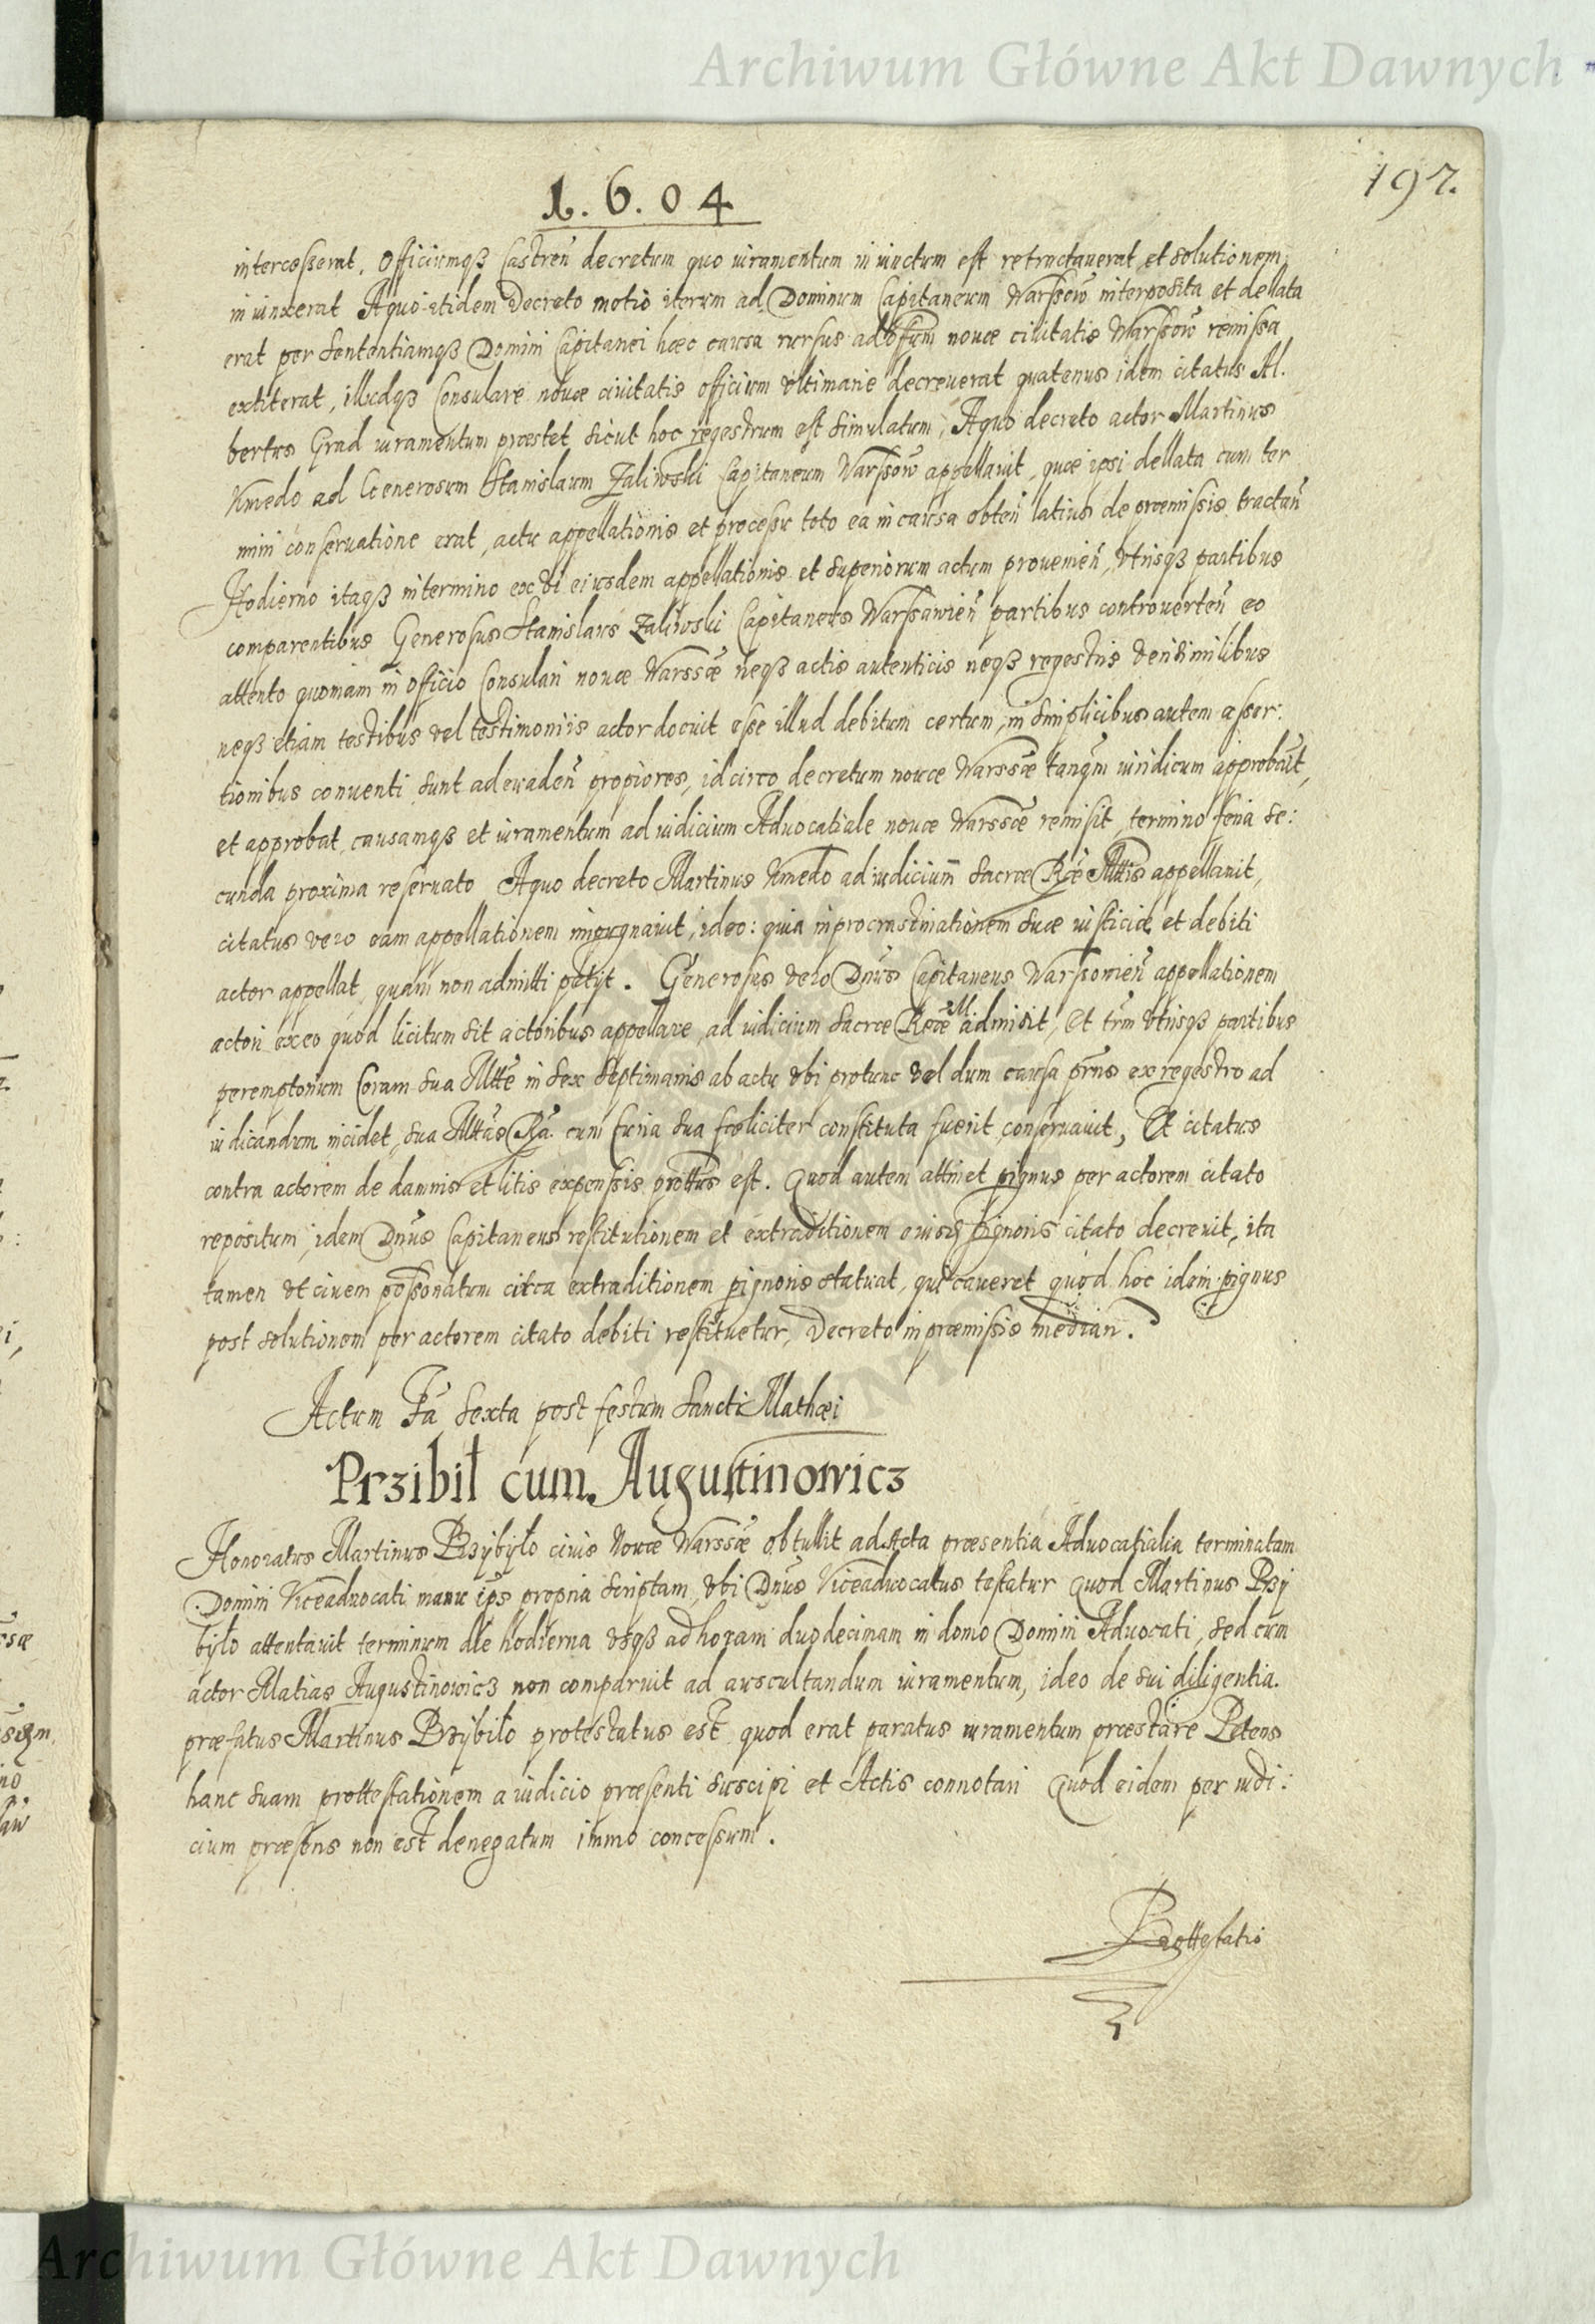 Archiwum Główne Akt Dawnych
197.
1.6.04
intercesserat, Officiumqꝫ Castreñ decretum quo iuramentum iniunctum est retractauerat et solutionem
iniunxerat Aquo itidem Decreto motio iterum ad Dominum Capitaneum Warssow̃ interposita et dellata
erat per Sententiamqꝫ Domini Capitanei hæc causa rursus ad offium nouæ ciuitatis Warssow̃ remissa
extiterat, illudqꝫ Consulare nouæ ciuitatis officium vltimarie decreuerat quatenus idem citatus Al.
bertus Grad iuramentum præstet sicut hoc regestrum est simulatum, Aquo decreto actor Martinus
Kmedo ad Generosum Stanislaum Zaliwski Capitaneum Warssow̃ appellauit, quæ ipsi dellata cum ter
mini conseruatione erat, actu appellationis et processu toto ea in causa obteñ latius de præmissis tractañ
Hodierno itaqꝫ in termino ex vi eiusdem appellationis et superiorum actum prouenieñ, vtrisqꝫ partibus
comparentibus Generosus Stanislaus Zaliwski Capitaneus Warssauieñ partibus controuerteñ eo
attento quoniam in officio Consulari nouæ Warssæ neqꝫ actis autenticis neqꝫ regestris verisimilibus
neqꝫ etiam testibus vel testimoniis actor docuit esse illud debitum certum, in simplicibus autem asser:
tionibus conuenti sunt ad euadeñ propiores, idcirco decretum nouæ Warssæ tanq̃m iuridicum approbauit,
et approbat, causamqꝫ et iuramentum ad iudicium Aduocatiale nouæ Warssæ remisit, termino feria se:
cunda proxima reseruato Aquo decreto Martinus Kmedo ad iudicium̃ Sacræ Rǣ Mttis appellauit,
citatus vero eam appellationem impugnauit, ideo: quia in procrastinationem suæ iusticiæ et debiti
actor appellat, quam non admitti petijt. Generosus vero Dñus Capitaneus Warssouieñ appellationem
actori ex eo quod licitum sit actoribus appellare, ad iudicium sacræ Regæ M admisit, Et trm̃ vtrisqꝫ partibus
peremptorium Coram sua Mtte in sex septimanis ab actu vbi protunc vel dum causa pr̃ns ex regestro ad
iudicandum incidet, sua Mttas Ra. cum Curia sua fœliciter constituta fuerit, conseruauit, Et citatus
contra actorem de damnis et litis expensis prottus est. Quod autem attinet pignus per actorem citato
repositum, idem Dñus Capitaneus restitutionem et extraditionem pignoris citato decreuit, ita
tamen vt ciuem possonatum circa extraditionem pignoris statuat, qui caueret quod hoc idem pignus
post solutionem per actorem citato debiti restituetur, Decreto in præmissis median̄.
Actum Fã Sexta post festum Sancti Mathæi
Przibił cum Augustinowicz
Honoratus Martinus Przÿbÿło ciuis Nouæ Warssæ obtullit ad Acta præsentia Aduocatialia terminatam
Domini Viceaduocati manu ip̃s propria scriptam, vbi Dñus Viceaduocatus testatur quod Martinus Przÿ
bÿło attentauit terminum die hodierna vsqꝫ ad horam duodecimam in domo Domini Aduocati, sed cum
actor Matias Augustinowicz non comparuit ad auscultandum iuramentum, ideo de sui diligentia.
præfatus Martinus Przÿbiło protestatus est quod erat paratus iuramentum præstare Petens
hanc suam prottestationem a iudicio præsenti suscipi et Actis connotari Quod eidem per iudi:
cium præsens non est denegatum immo concessum.
Prottestatio
Archiwum Główne Akt Dawnych